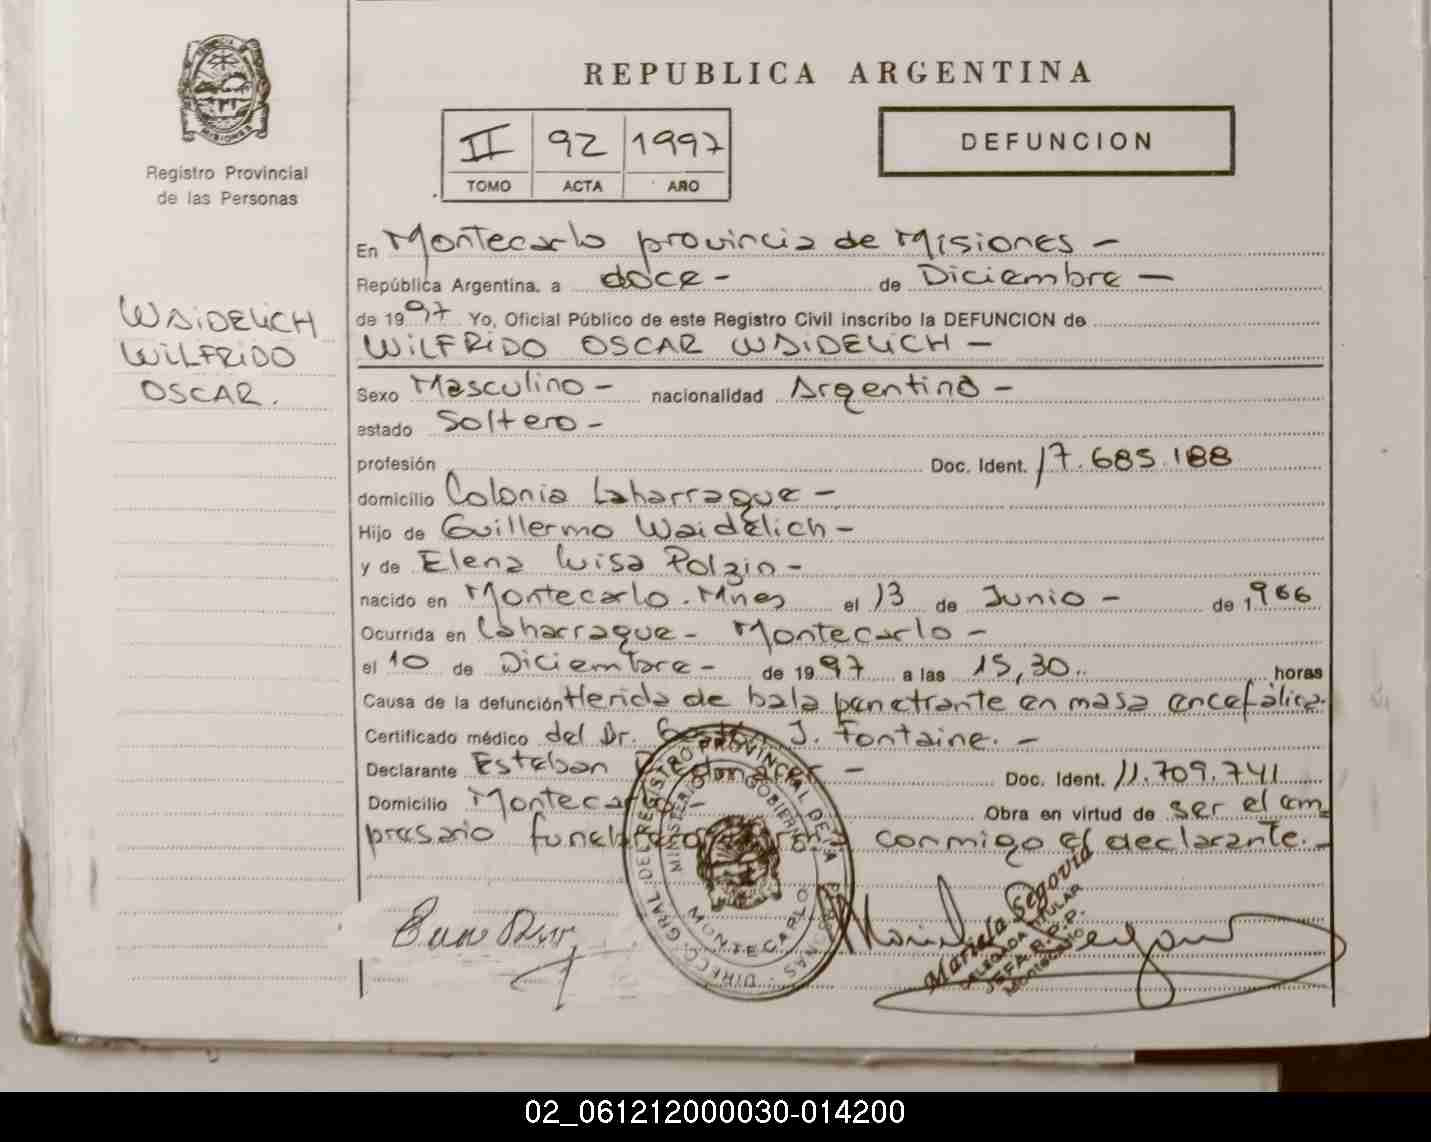 REPUBLICA ARGENTINA
II 92 1997
TOMO ACTA AÑO
DEFUNCION
Registro Provincial
de las Personas
WAIDELICH
WILFRIDO
OSCAR.
En Montecarlo provincia de Misiones -
República Argentina. a doce - de Diciembre -
de 1997 Yo, Oficial Público de este Registro Civil inscribo la DEFUNCION de
WILFRIDO OSCAR WAIDELICH -
Sexo Masculino - nacionalidad Argentina -
estado Soltero -
profesión Doc. Ident. 17.685.188
domicilio Colonia Laharrague -
Hijo de Guillermo Waidelich -
y de Elena Luisa Polzin -
nacido en Montecarlo. Mnes el 13 de Junio - de 1.966
Ocurrida en Laharrague - Montecarlo -
el 10 de Diciembre - de 1997 a las 15,30.. horas
Causa de la defunción Herida de bala penetrante en masa encefálica.
Certificado médico del Dr. J. Fontaine. -
Declarante Esteban - Doc. Ident. 11.709.741
Domicilio Montecarlo - Obra en virtud de ser el em
presario conmigo el declarante. -
DIRECC. GRAL. DE REGISTRO PROVINCIAL DE LA PERSONAS
MINISTERIO GOBIERNO
MONTECARLO
Mariela Segovia
DELEGADA TITULAR
JEFA R.P.P.
Montecarlo
02_061212000030-014200